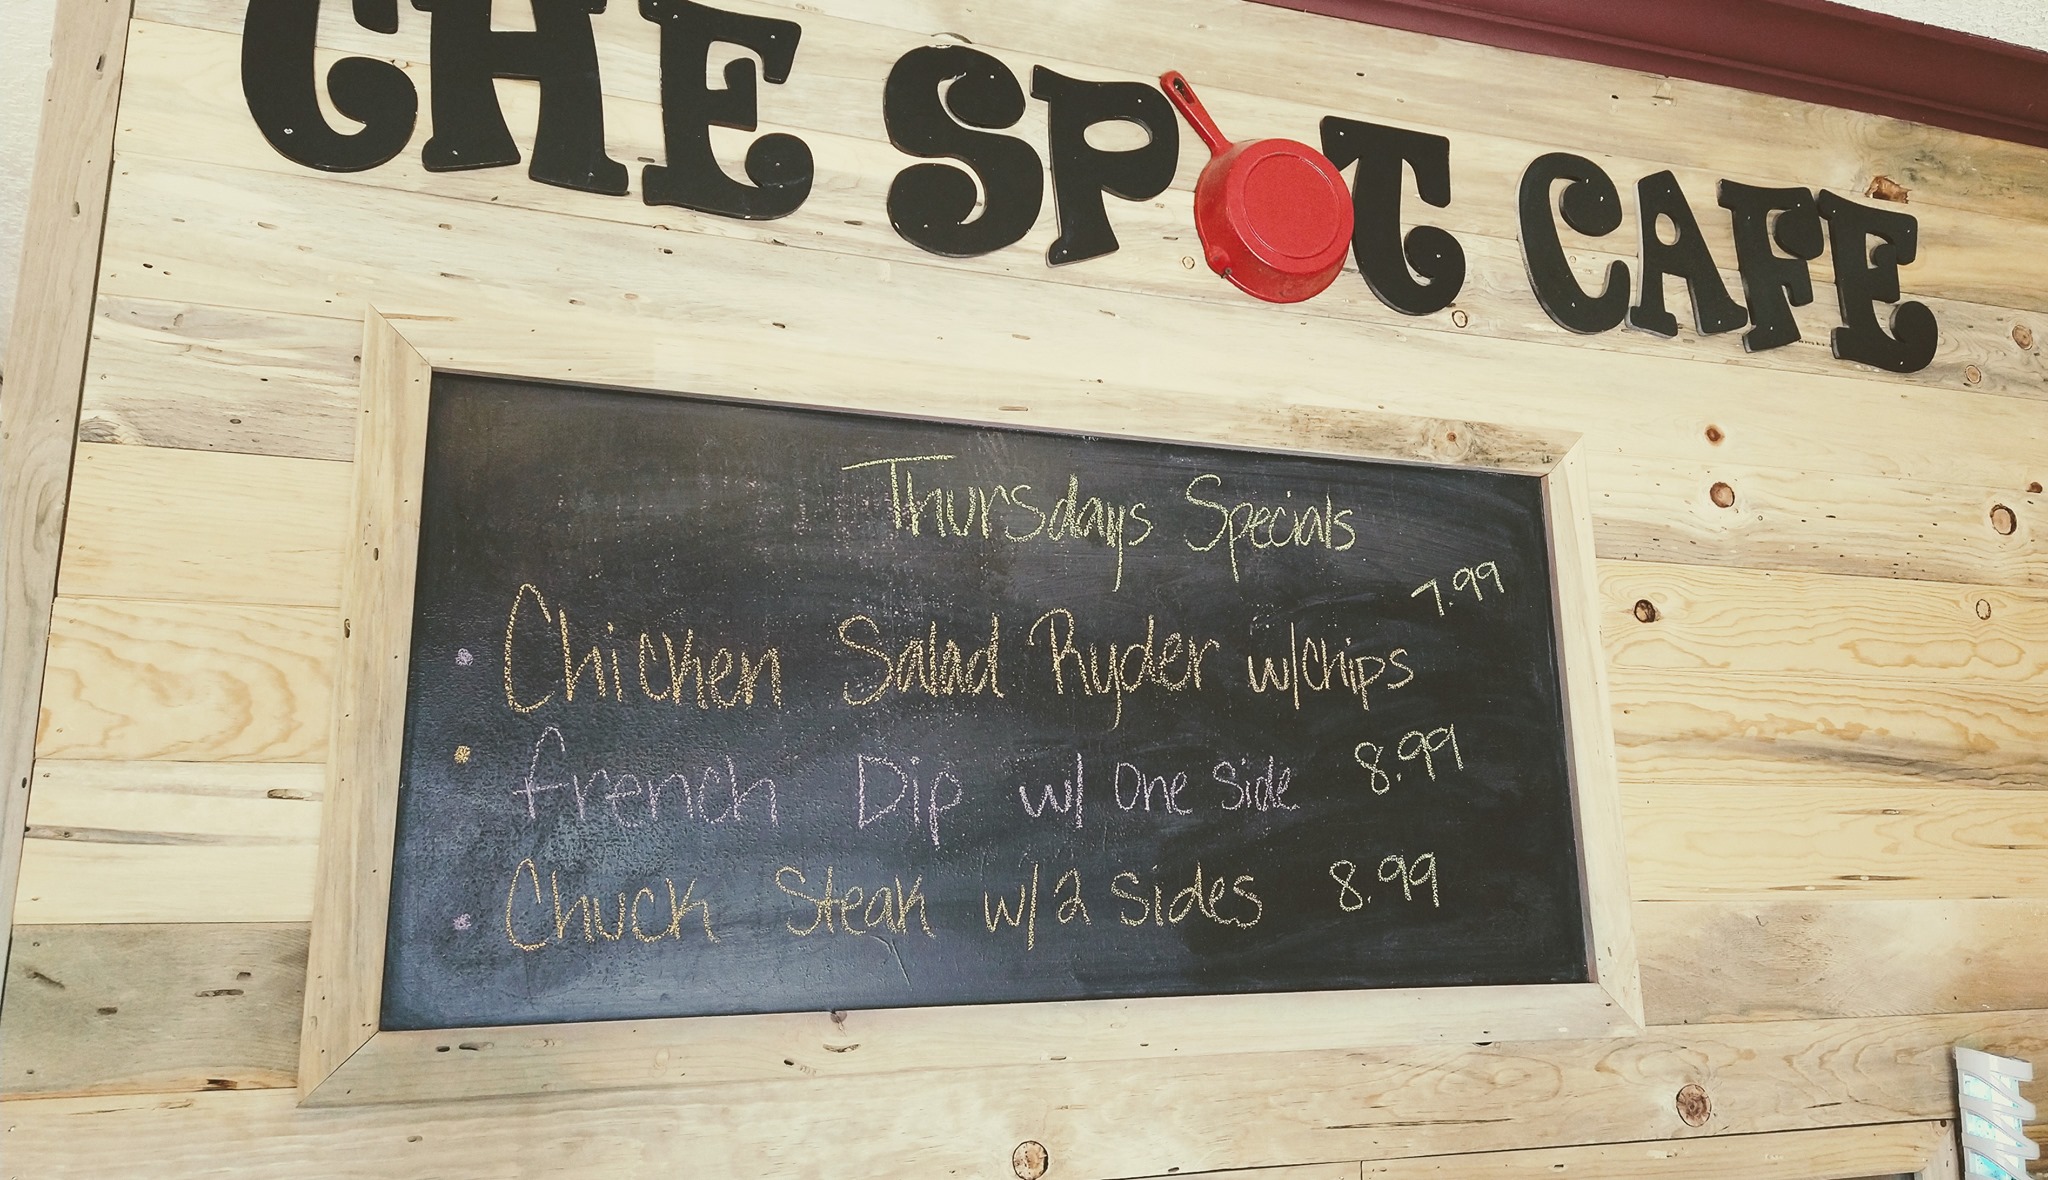 THE SPOT CAFE
Thursdays Specials
7.99
• Chicken Salad Ryder w/chips
• French Dip w/ One Side 8.99
• Chuck Steak w/2 Sides 8.99